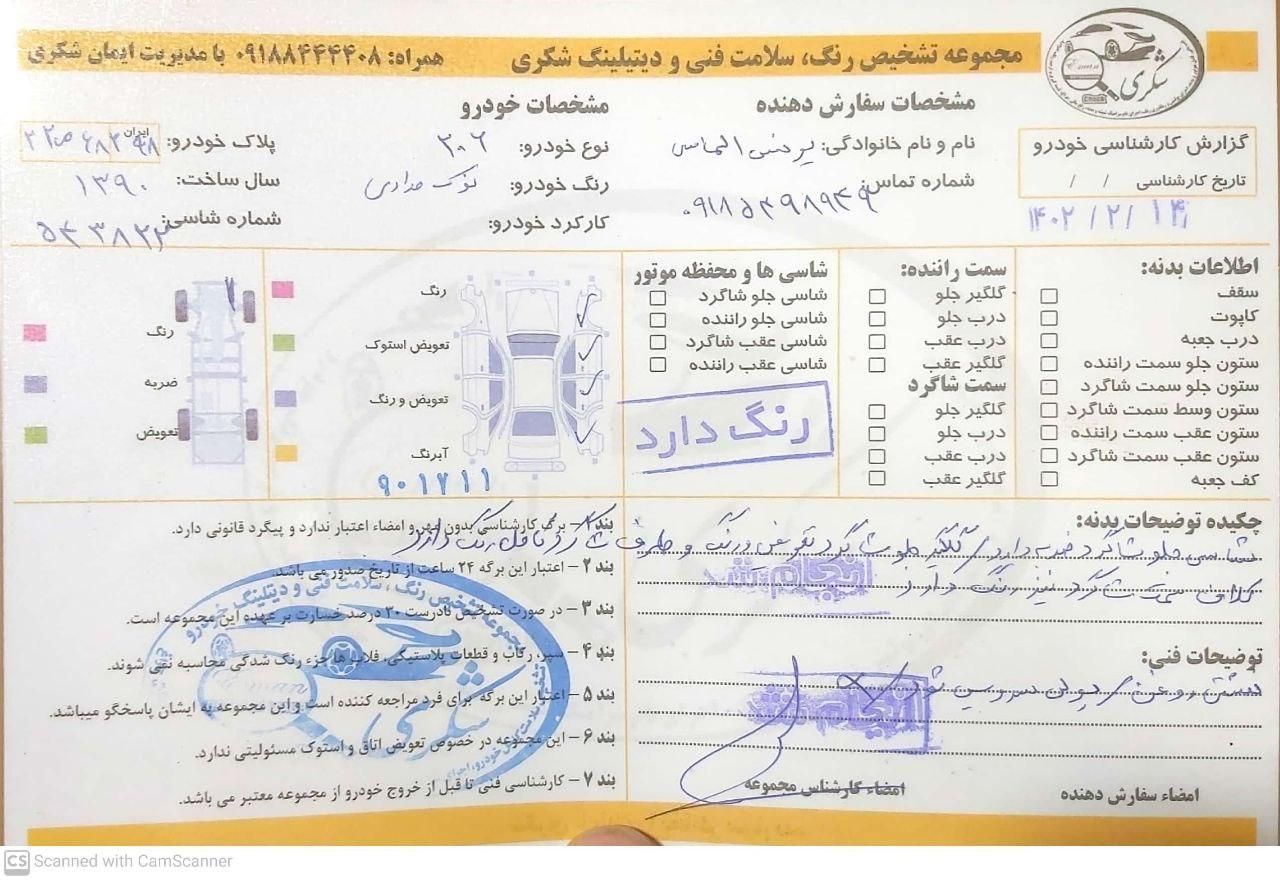 مجموعه تشخیص رنگ، سلامت فنی و دیتیلینگ شکری همراه: ۰۹۱۸۸۴۴۴۴۰۸ با مدیریت ایمان شکری
شکری
CHECK
گزارش کارشناسی خودرو
تاریخ کارشناسی / /
۱۴۰۲/۲/۱۴
مشخصات سفارش دهنده
نام و نام خانوادگی:
شماره تماس:
مشخصات خودرو
نوع خودرو: ۲۰۶
رنگ خودرو: نوک مدادی
کارکرد خودرو:
پلاک خودرو: ایران
سال ساخت: ۱۳۹۰
شماره شاسی:
اطلاعات بدنه:
سقف
کاپوت
درب جعبه
ستون جلو سمت راننده
ستون جلو سمت شاگرد
ستون وسط سمت شاگرد
ستون عقب سمت راننده
ستون عقب سمت شاگرد
کف جعبه
سمت راننده:
گلگیر جلو
درب جلو
درب عقب
گلگیر عقب
سمت شاگرد
گلگیر جلو
درب جلو
درب عقب
گلگیر عقب
شاسی ها و محفظه موتور
شاسی جلو شاگرد
شاسی جلو راننده
شاسی عقب شاگرد
شاسی عقب راننده
رنگ دارد
رنگ
تعویض استوک
تعویض و رنگ
آبرنگ
۹۰۱۷۱۱
رنگ
ضربه
تعویض
چکیده توضیحات بدنه:
شاسی جلو شاگرد ضربه دارد / گلگیر جلو شاگرد تعویض و رنگ و طرف شاگرد کامل رنگ دارد
سمت شاگرد نیز رنگ دارد
انجام شد
توضیحات فنی:
نشتی روغن / سرویس شود
انجام شد
امضاء سفارش دهنده
امضاء کارشناس مجموعه
بند ۱ – برگ کارشناسی بدون مهر و امضاء اعتبار ندارد و پیگرد قانونی دارد.
بند ۲ – اعتبار این برگه ۲۴ ساعت از تاریخ صدور می باشد.
بند ۳ – در صورت تشخیص نادرست ۳۰ درصد خسارت بر عهده این مجموعه است.
بند ۴ – سپر، رکاب و قطعات پلاستیکی، قلاب ها جزء رنگ شدگی محاسبه نمی شوند.
بند ۵ – اعتبار این برگه برای فرد مراجعه کننده است و این مجموعه به ایشان پاسخگو میباشد.
بند ۶ – این مجموعه در خصوص تعویض اتاق و استوک مسئولیتی ندارد.
بند ۷ – کارشناسی فنی تا قبل از خروج خودرو از مجموعه معتبر می باشد.
مجموعه تشخیص رنگ، سلامت فنی و دیتیلینگ خودرو
شکری
CS Scanned with CamScanner